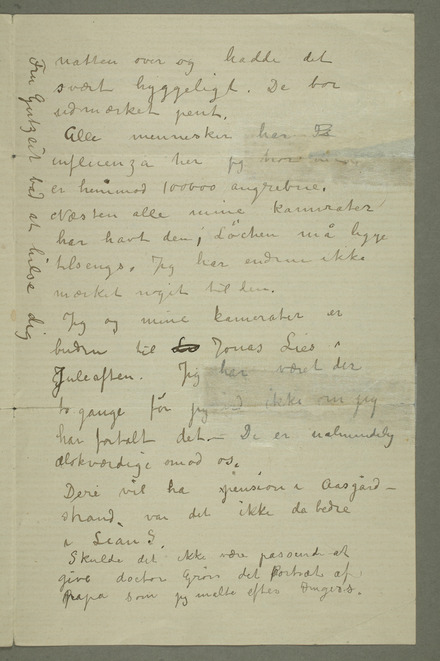 natten over og hadde det
svært hyggeligt. De bor
udmærket pent.
Alle mennesker har
influenza her jeg tror
er henimod 100000 angrebne.
Næsten alle mine kamerater
har havt den; Løchen må ligge
tilsengs. Jeg har endnu ikke
mærket noget til den.
Jeg og mine kamerater er
buden til Jonas Lies i
Juleaften. Jeg har været der
to gange før jeg ved ikke om jeg
har fortalt det. – De er ualmindelig
elskværdige imod os.
Dere vil ha pension i Aasgård–
strand, var det ikke da bedre
i
Skulde det ikke være passende at
give doctor det Portræt af
Papa som jeg malte efter
Fru bad at hilse dig